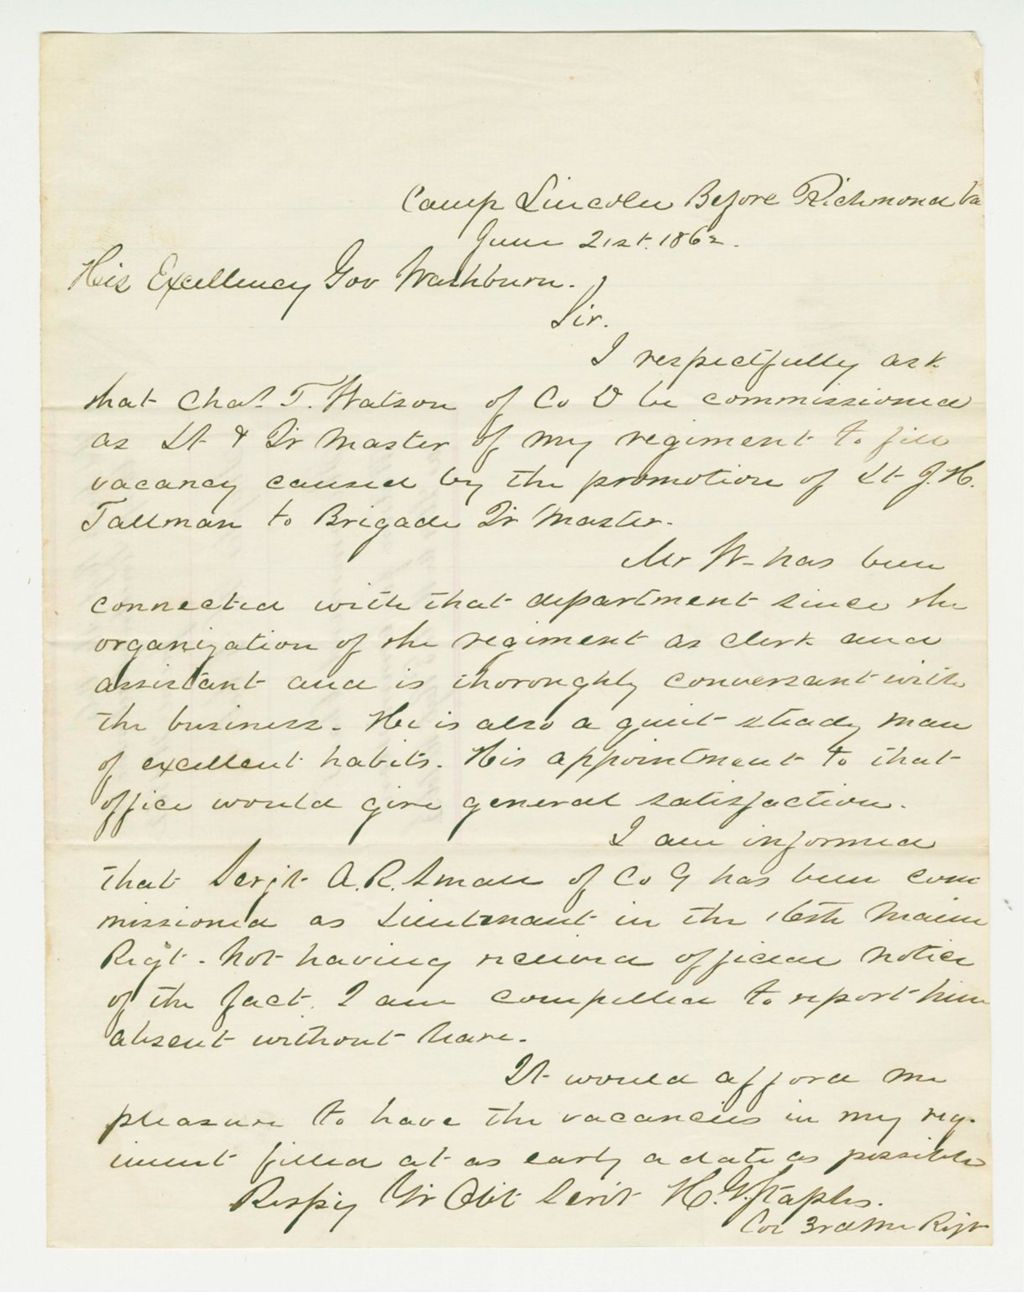 Camp Lincoln Before Richmond Va
June 21st. 1862.
His Excellency Gov Washburn.
Sir.
I respectfully ask
that Chas. T. Watson of Co D be commissioned
as Lt & Qr Master of my regiment to fill
vacancy caused by the promotion of Lt J. H.
Tallman to Brigade Qr Master.
Mr W- has been
connected with that department since the
organization of the regiment as clerk and
assistant and is thoroughly conversant with
the business. He is also a quiet steady man
of excellent habits. His appointment to that
office would give general satisfaction.
I am informed
that Serjt A. R. Small of Co G has been com
missioned as Lieutenant in the 16th Maine
Regt. Not having received official notice
of the fact. I am compelled to report him
absent without leave.
It would afford me
pleasure to have the vacancies in my reg-
iment filled at as early a date as possible
Respy Yr Obt Servt H. G. Staples.
Col 3rd Me Regt